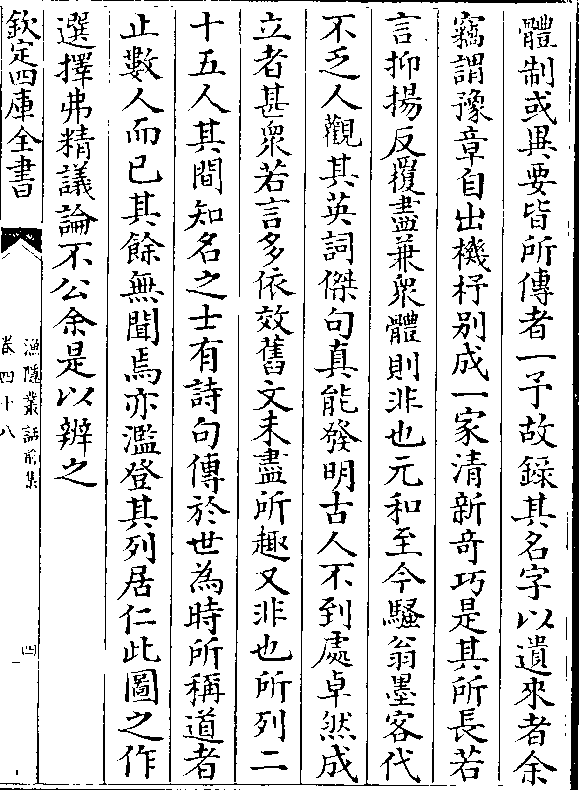 體制或異要皆所傳者一予故録其名字以遺來者余
竊謂豫章自出機杼别成一家清新奇巧是其所長若
言抑揚反覆盡兼衆體則非也元和至今騷翁墨客代
不乏人觀其英詞傑句真能發明古人不到處卓然成
立者甚衆若言多依效舊文未盡所趣又非也所列二
十五人其間知名之士有詩句傳於世為時所稱道者
止數人而已其餘無聞焉亦濫登其列居仁此圖之作
選擇弗精議論不公余是以辨之
欽定四庫全書
漁隱叢話前集
卷四十八
四